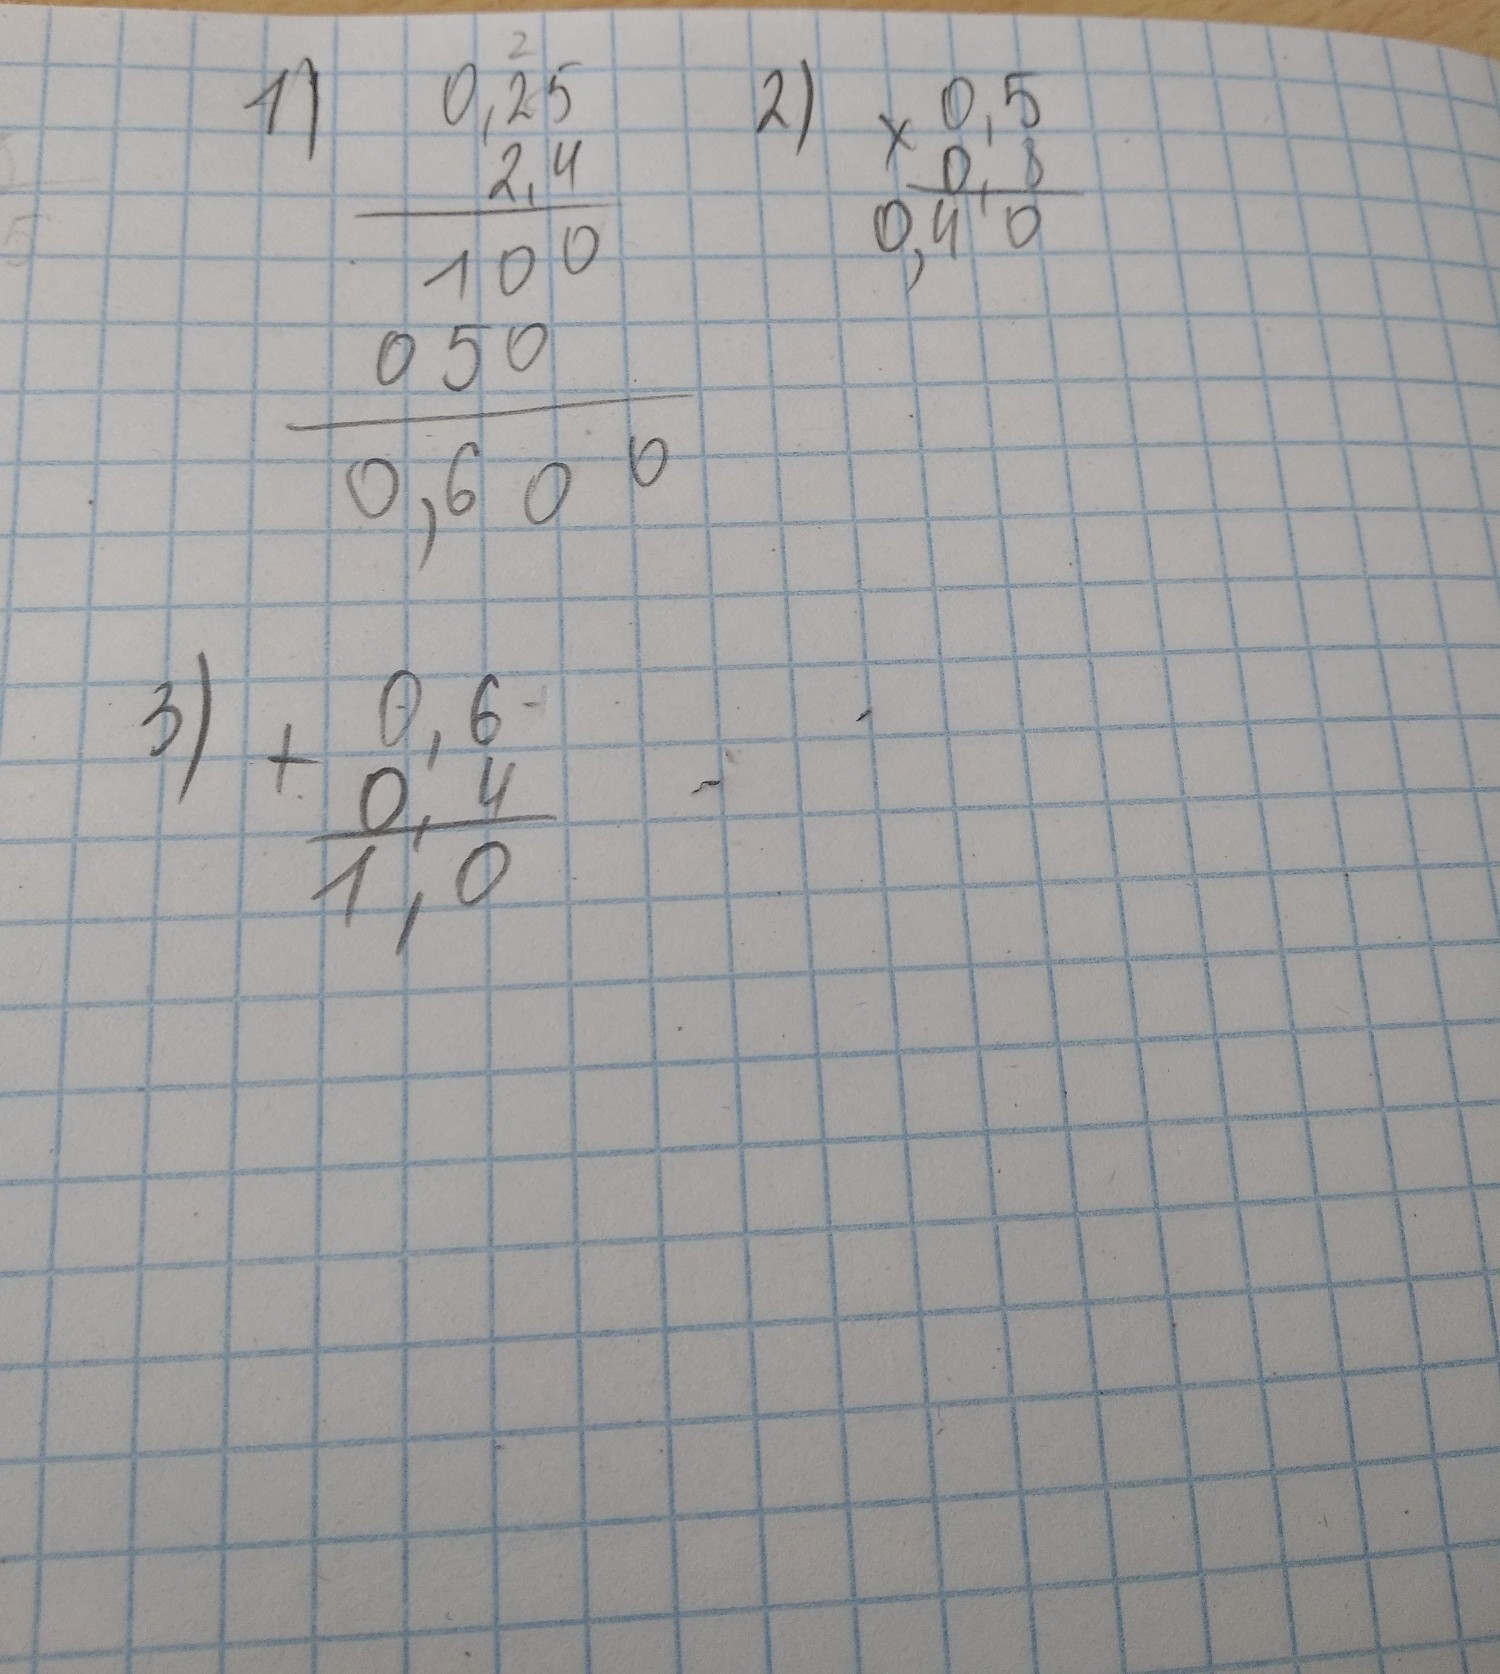 1) 2
0,25
2,4
100
050
0,600
2) x 0,5
0,8
0,40
3) + 0,6
0,4
1,0